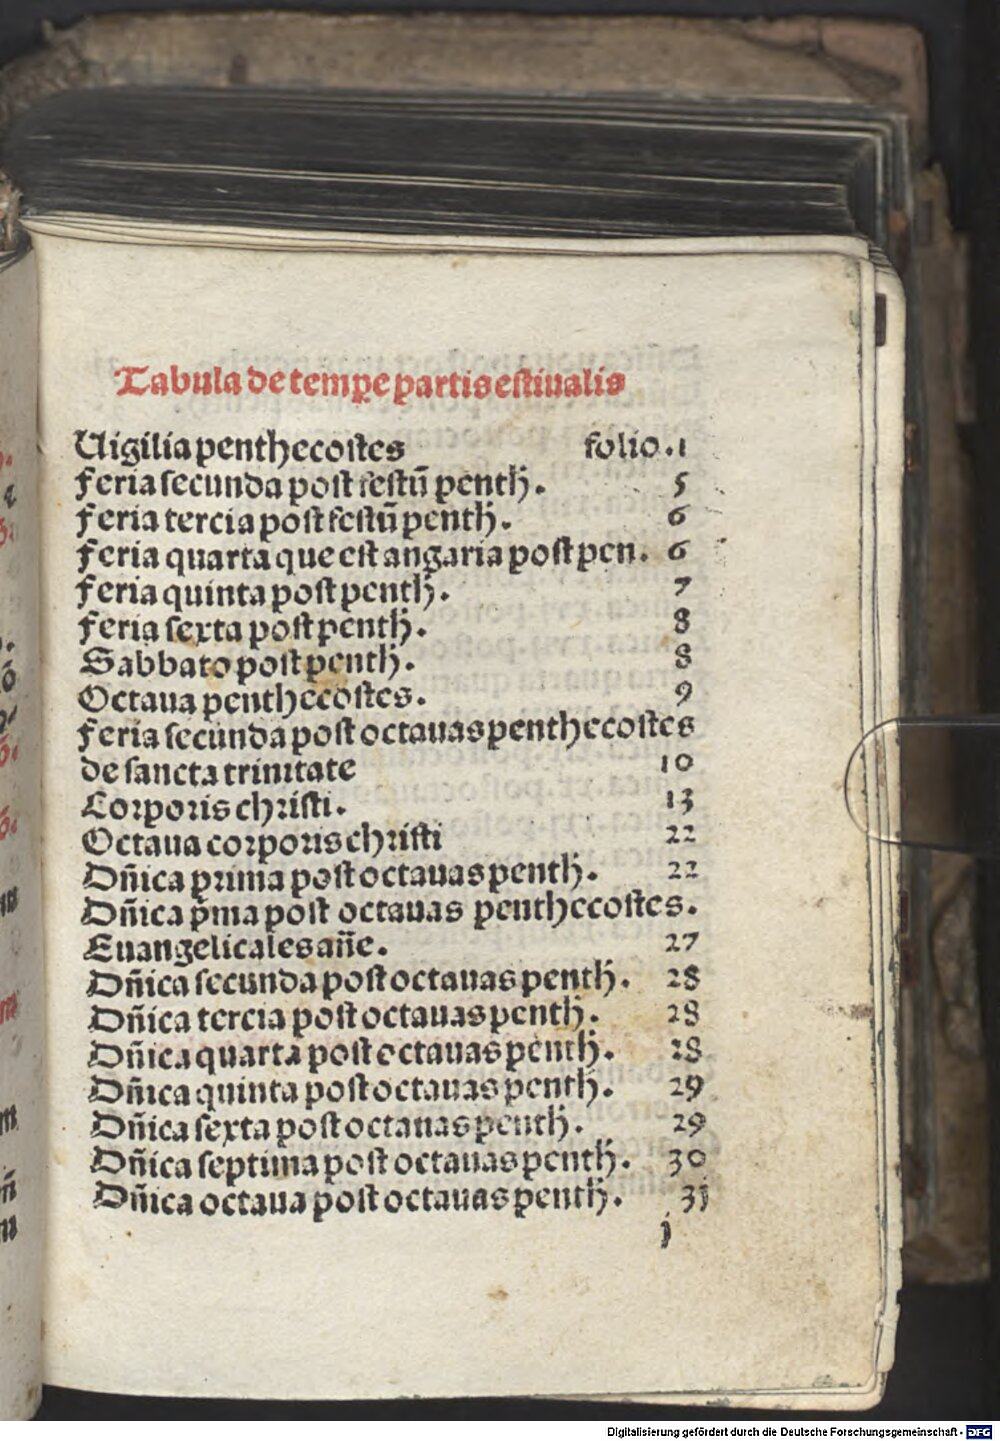 Tabula de tempe partis estiualis
Uigilia penthecostes folio.1
feria secunda post festū penth. 5
feria tercia post festū penth. 6
feria quarta que est angaria post pen. 6
feria quinta post penth. 7
feria sexta post penth. 8
Sabbato post penth. 8
Octaua penthecostes. 9
feria secunda post octauas penthecostes
de sancta trinitate 10
Corporis christi. 13
Octaua corporis christi 22
Dñica prima post octauas penth. 22
Dñica p̄ma post octauas penthecostes.
Euangelicales añe. 27
Dñica secunda post octauas penth. 28
Dñica tercia post octauas penth. 28
Dñica quarta post octauas penth. 28
Dñica quinta post octauas penth. 29
Dñica sexta post octauas penth. 29
Dñica septima post octauas penth. 30
Dñica octaua post octauas penth. 3j
j
Digitalisierung gefördert durch die Deutsche Forschungsgemeinschaft - DFG